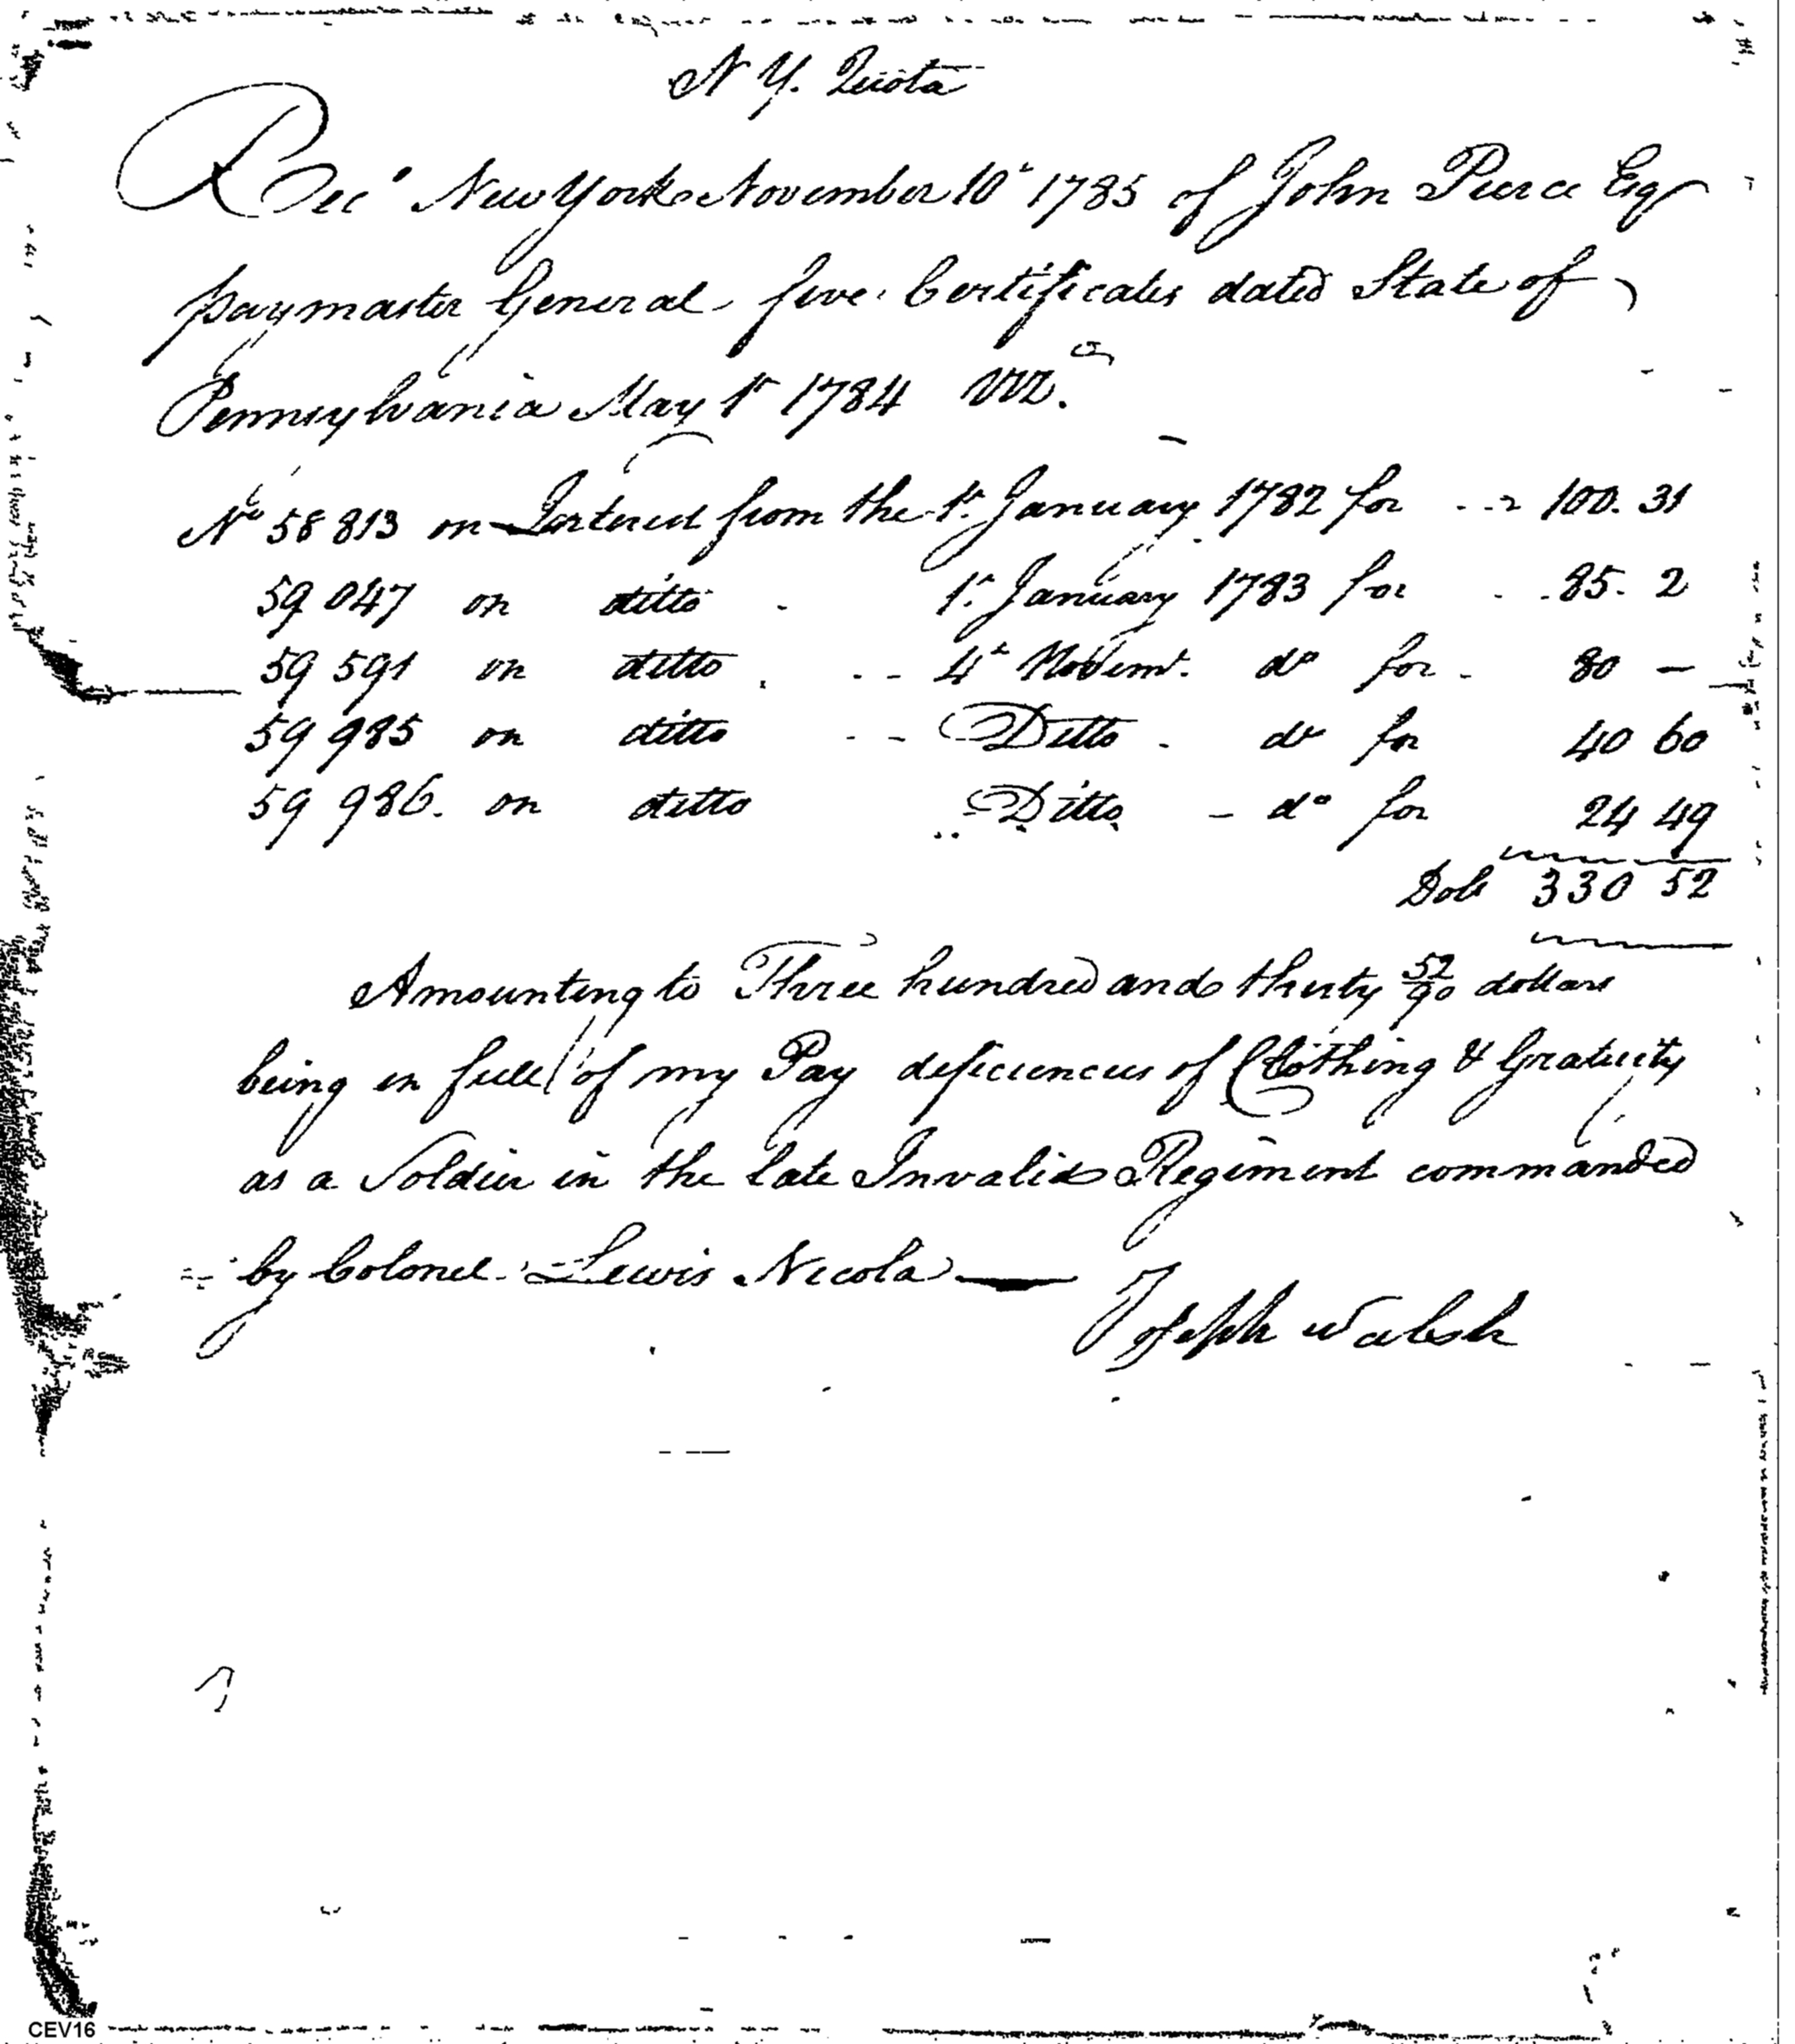 N Y. Quota
Rec^d New York November 10^th 1785 of John Pierce Esq^r
paymaster General five Certificates dated State of
Pennsylvania May 1^st 1784 viz.
N^o 58 813 on Interest from the 1^st January 1782 for 100. 31
59 047 on ditto 1^st January 1783 for 85. 2
59 591 on ditto 4^th Novem^r. d^o for 80 —
59 985 on ditto Ditto d^o for 40 60
59 986. on ditto Ditto d^o for 24 49
Dols 330 52
Amounting to Three hundred and thirty 52/90 dollars
being in full of my Pay deficiencies of Clothing & Gratuity
as a Soldier in the late Invalid Regiment commanded
by Colonel Lewis Nicola —
Joseph Walsh
CEV16